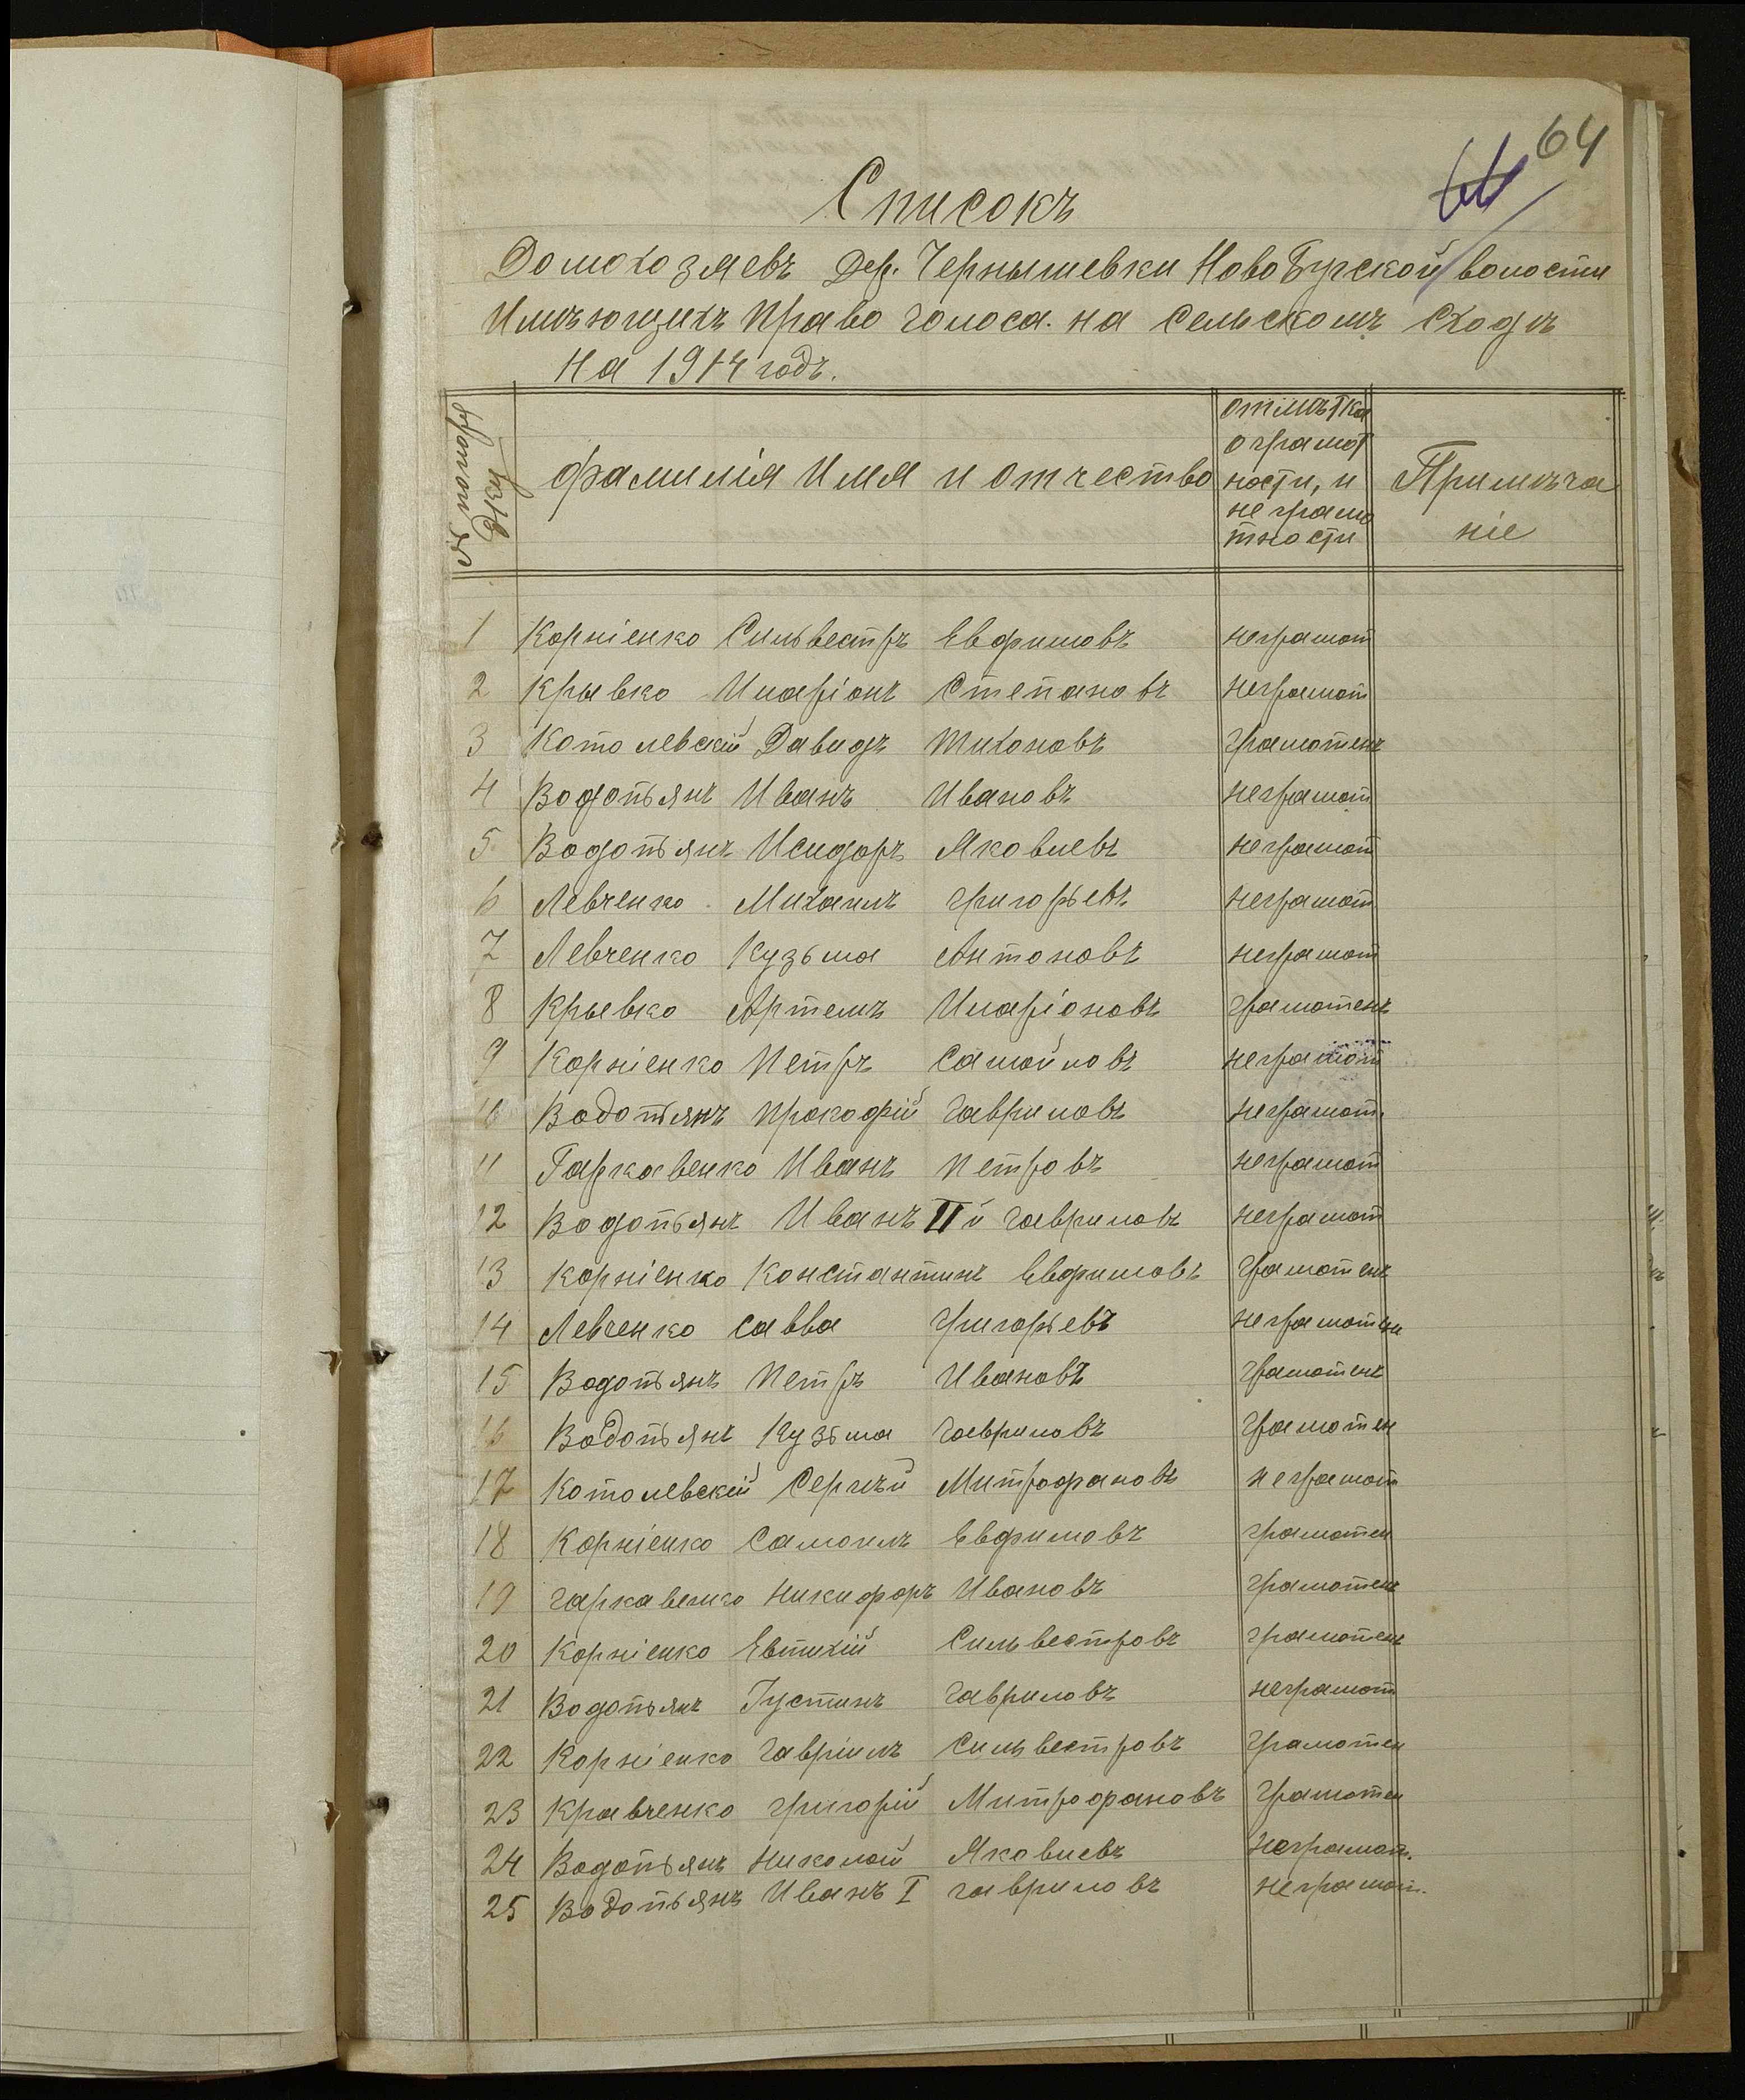 64
Списокъ
Домохозяевъ Дер. Чернышевки Ново Бугской волости
Имѣющихъ право голоса. на сельскомъ сходѣ
на 1914 годъ.
фамилія Имя и отчество
отмѣтка
о грамот
ности, и
не грамо
тности
Примѣча
ніе
1 Корніенко Сильвестръ Евфимовъ неграмот
2 Крывко Иларіонъ Степановъ неграмот
3 Котолевскій Давидъ Тихоновъ грамотенъ
4 Водопьянъ Иванъ Ивановъ неграмот
5 Водопьянъ Исидоръ Яковлевъ неграмот
6 Левченко Михаилъ Григорьевъ неграмот
7 Левченко Кузьма Антоновъ неграмот
8 Крывко Артемъ Иларіоновъ грамотенъ
9 Корніенко Петръ Самойловъ неграмот
10 Водопьянъ Прокофій Гавриловъ неграмот.
11 Гаркавенко Иванъ Петровъ неграмот
12 Водопьянъ Иванъ II й Гавриловъ неграмот
13 Корніенко Константинъ Евфимовъ грамотенъ
14 Левченко Савва Григорьевъ неграмотен
15 Водопьянъ Петръ Ивановъ грамотенъ
16 Водопьянъ Кузьма Гавриловъ грамотен
17 Котолевскій Сергѣй Митрофановъ неграмот
18 Корніенко Самоилъ Евфимовъ грамотен
19 Гаркавенко Никифоръ Ивановъ грамотен
20 Корніенко Евтихій Сильвестровъ грамотенъ
21 Водопьянъ Іустинъ Гавриловъ неграмот
22 Корніенко Гавріилъ Сильвестровъ грамотен
23 Кравченко Григорій Митрофановъ грамотен
24 Водопьянъ Николай Яковлевъ неграмот.
25 Водопьянъ Иванъ I Гавриловъ неграмот.